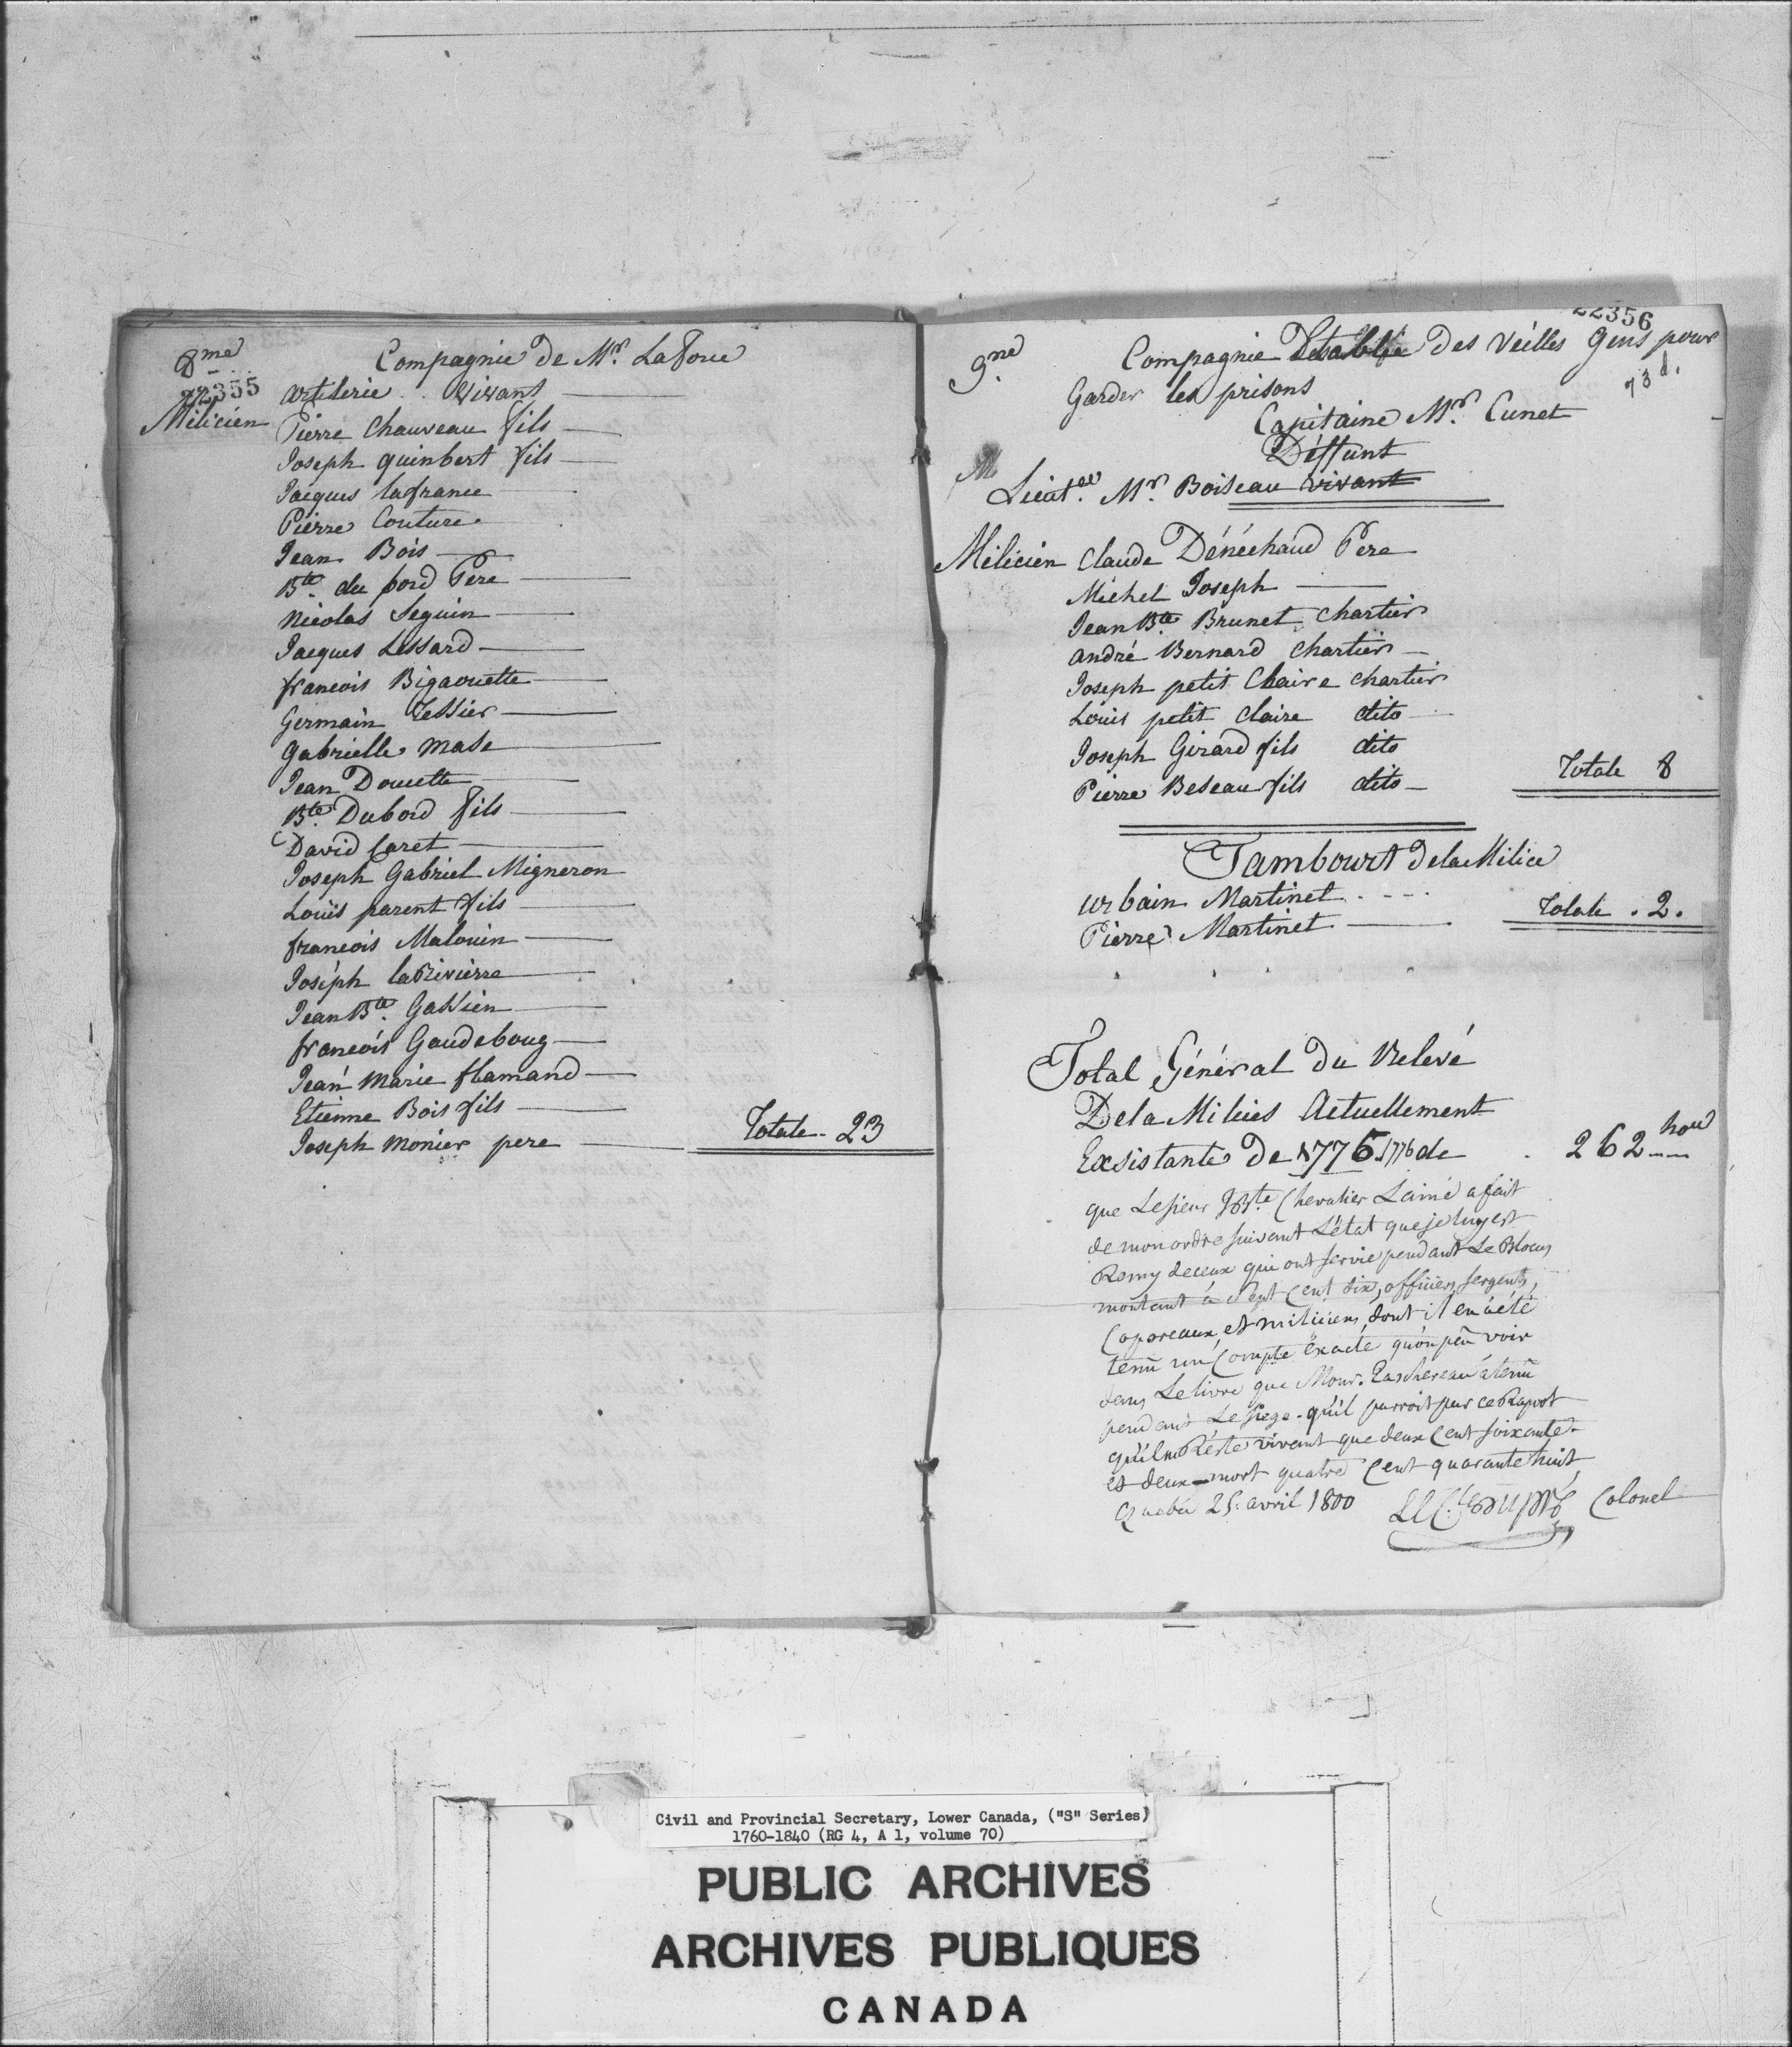 8me Compagnie de Mr. LaForce
22355 artilerie . . vivant
Milicien Pierre Chauveau fils
Joseph quinbert fils
Jacques lafrance
Pierre Couture
Jean Bois
Bte. du bord Pere
Nicolas Seguin
Jacques Lessard
francois Bigaouette
Germain Tessier
Gabrielle mase
Jean Douette
Bte. Dubord fils
David Caret
Joseph Gabriel Migneron
Louis parent fils
francois Malouin
Joséph laRivierre
Jean Bte. Gassien
francois Gaudeboug
Jean marie flamand
Etienne Bois fils
Joseph monier pere Totale - 23
22356
9me. Compagnie Etablie Des Veilles Gens pour
73 d.
Garder les prisons
Capitaine Mr. Cunet
Déffunt
Lieut. Mr. Boiseau vivant
Milicien Claude Dénéchaud Pere
Michel Joseph
Jean Bte. Brunet Chartier
André Bernard Chartier
Joseph petit Claire Chartier
Louis petit Claire dito
Joseph Girard fils dito
Pierre Beseau fils dito
Totale 8
Tambourt de la Milice
urbain Martinet
Pierre Martinet Totale . 2.
Total Général Du Relevé
De la Milices Actuellement
Exsistante De 1775 1776 de 262 hou
que Lesieur JBte. Chevalier Lainé a fait
de mon ordre suivant L'état que je luy est
Remy de ceux qui ont servie pendant Le Blocus
montant a Sept Cent dix, officiers, sergents,
Caporeaux, et miliciens, dont il en a été
tenû un Compte éxacte qu'on peu voir
dans Le livre que Monsr. Taschereau a tenû
pendant Le Siege. qu'il parroit par ce Raport
qu'il ne Réste vivant que deux Cent soixante
et deux - mort quatre Cent quarante huit
Quebec 25. avril 1800 LeCte Dupré Colonel
Civil and Provincial Secretary, Lower Canada, ("S" Series)
1760-1840 (RG 4, A 1, volume 70)
PUBLIC ARCHIVES
ARCHIVES PUBLIQUES
CANADA